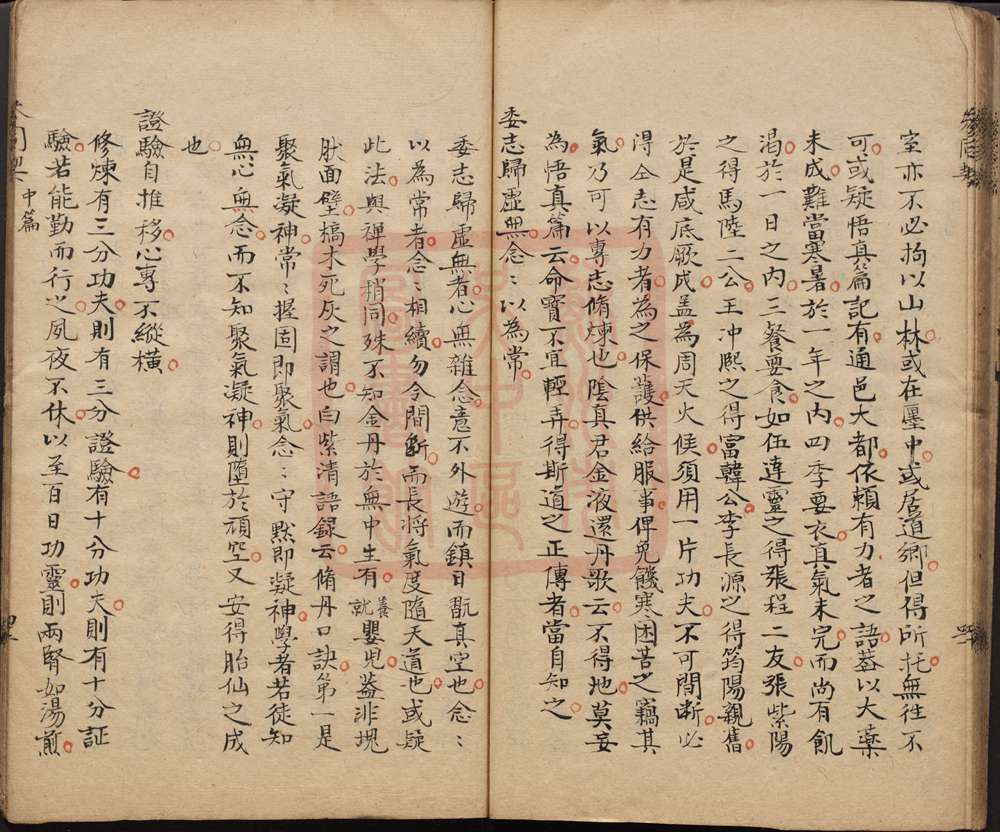 室亦不必拘以山林或在廛中或居道鄉但得所托無往不
可或疑悟真篇記有通邑大都依賴有力者之語蓋以大藥
未成難當寒暑於一年之内四季要衣真氣未完而尚有飢
渴於一日之内三餐要食如伍達靈之得張程二友張紫陽
之得馬陸二公王冲熙之得富韓公李長源之得筠陽親舊
於是咸底厥成盖為周天火候須用一片功夫不可間斷必
得仝志有力者為之保護供給服事俾免饑寒困苦之竊其
氣乃可以專志脩煉也陰真君金液還丹歌云不得地莫妄
為悟真篇云命寶不宜輕弄得斯道之正傳者當自知之
委志歸虛無念:以為常
委志歸虛無者心無雜念意不外遊而鎮日翫真空也念:
以為常者念:相續勿令間斷而長將氣度隨天道也或疑
此法與禪學稍同殊不知金丹於無中生有養就嬰兒葢非塊
肰面壁槁木死灰之謂也白紫清語録云脩丹口訣第一是
聚氣凝神常:握固即聚氣念:守默即凝神學者若徒知
無心無念而不知聚氣凝神則墮於頑空又安得胎仙之成
也
證驗自推移心專不縱橫
修煉有三分功夫則有三分證驗有十分功夫則有十分証
驗若能勤而行之夙夜不休以至百日功靈則兩腎如湯煎
中篇